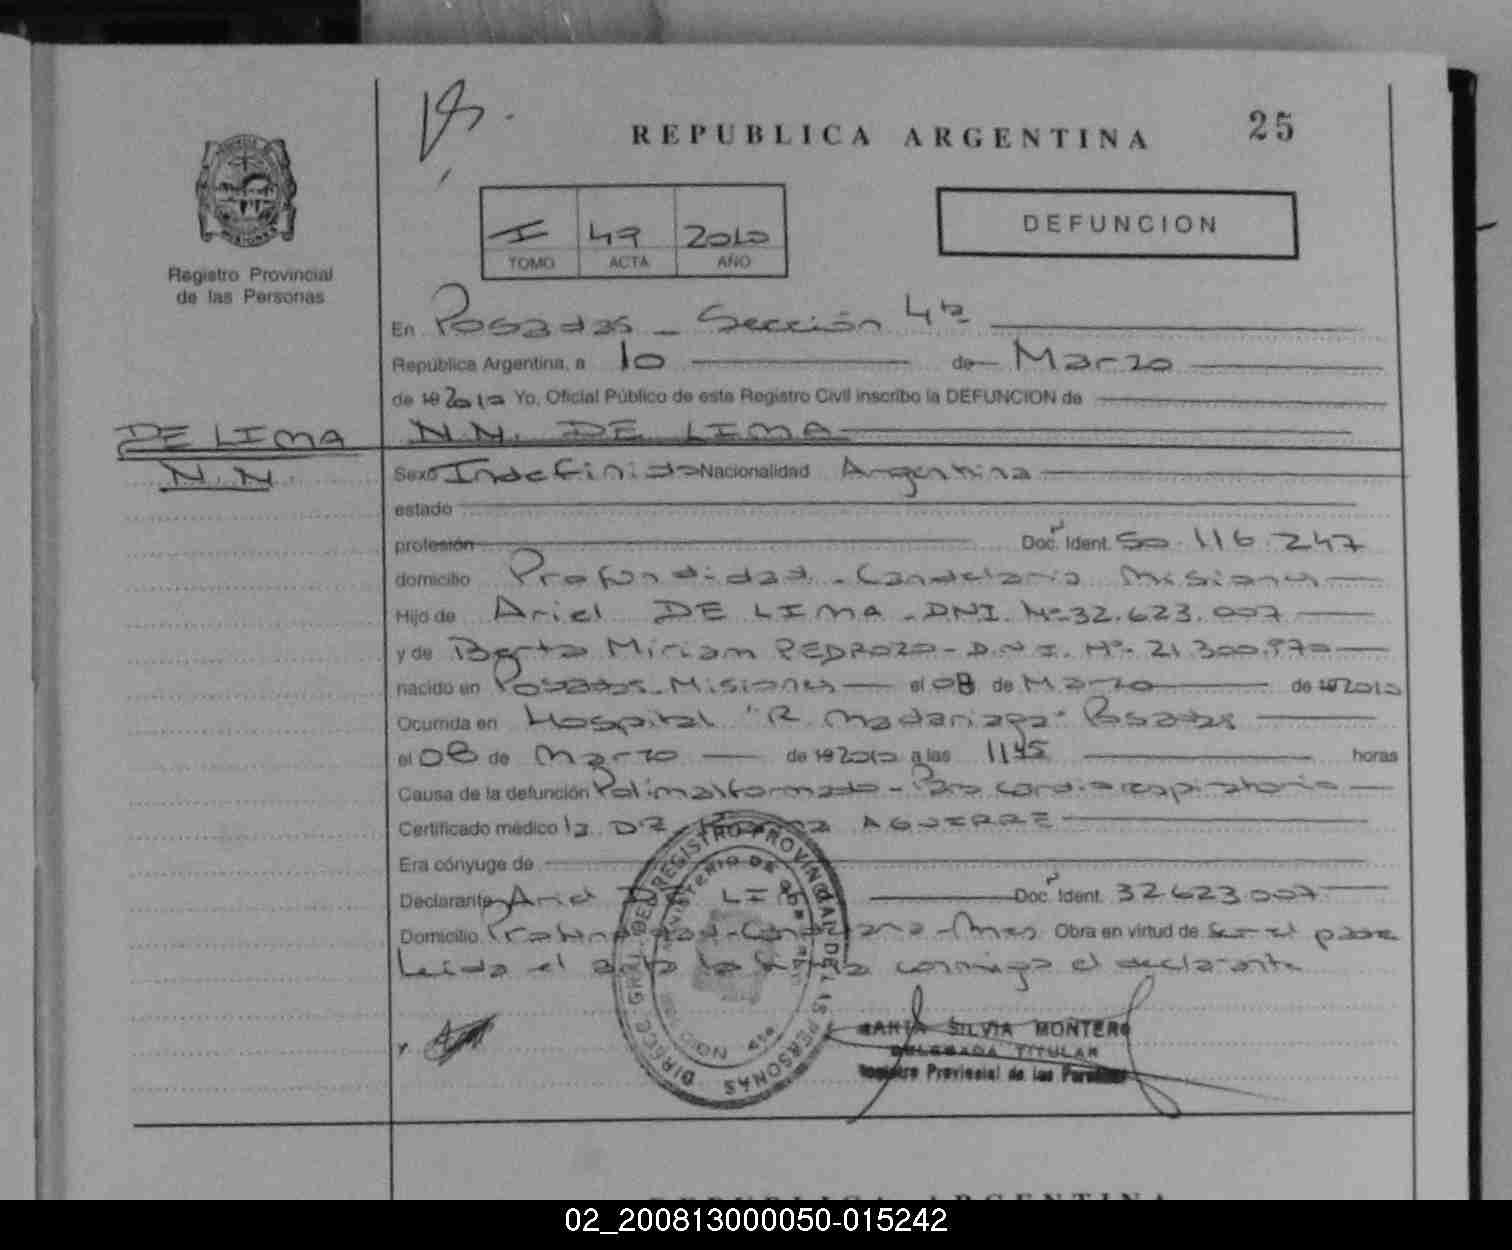 REPUBLICA ARGENTINA
25
I 49 2010
TOMO ACTA AÑO
DEFUNCION
Registro Provincial
de las Personas
En Posadas - Sección 4ta
República Argentina, a 10 de Marzo
de 19 2010 Yo, Oficial Público de este Registro Civil inscribo la DEFUNCION de
DE LIMA N.N. DE LIMA
N.N. Sexo Indefinido Nacionalidad Argentina
estado
profesión Doc. Ident. 50.116.247
domicilio Profundidad - Candelaria Misiones
Hijo de Ariel DE LIMA - DNI. Nº 32.623.007
y de Berta Miriam PEDROZO - D.N.I. Nº 21.300.970
nacido en Posadas - Misiones el 08 de Marzo de 19 2010
Ocurrida en Hospital "R. Madariaga" Posadas
el 08 de Marzo de 19 2010 a las 1145 horas
Causa de la defunción Polimalformado - Paro cardiorespiratorio
Certificado médico la DRA AGUIRRE
Era cónyuge de
Declarante Ariel DE LIMA Doc. Ident. 32.623.007
Domicilio Profundidad - Candelaria - Mnes Obra en virtud de Ser el padre
Leída el acta la firma conmigo el declarante
MARTA SILVIA MONTERO
DELEGADA TITULAR
Registro Provincial de las Personas
DIRECC. GRAL. DEL REGISTRO PROVINCIAL DE LAS PERSONAS
REPUBLICA ARGENTINA
02_200813000050-015242